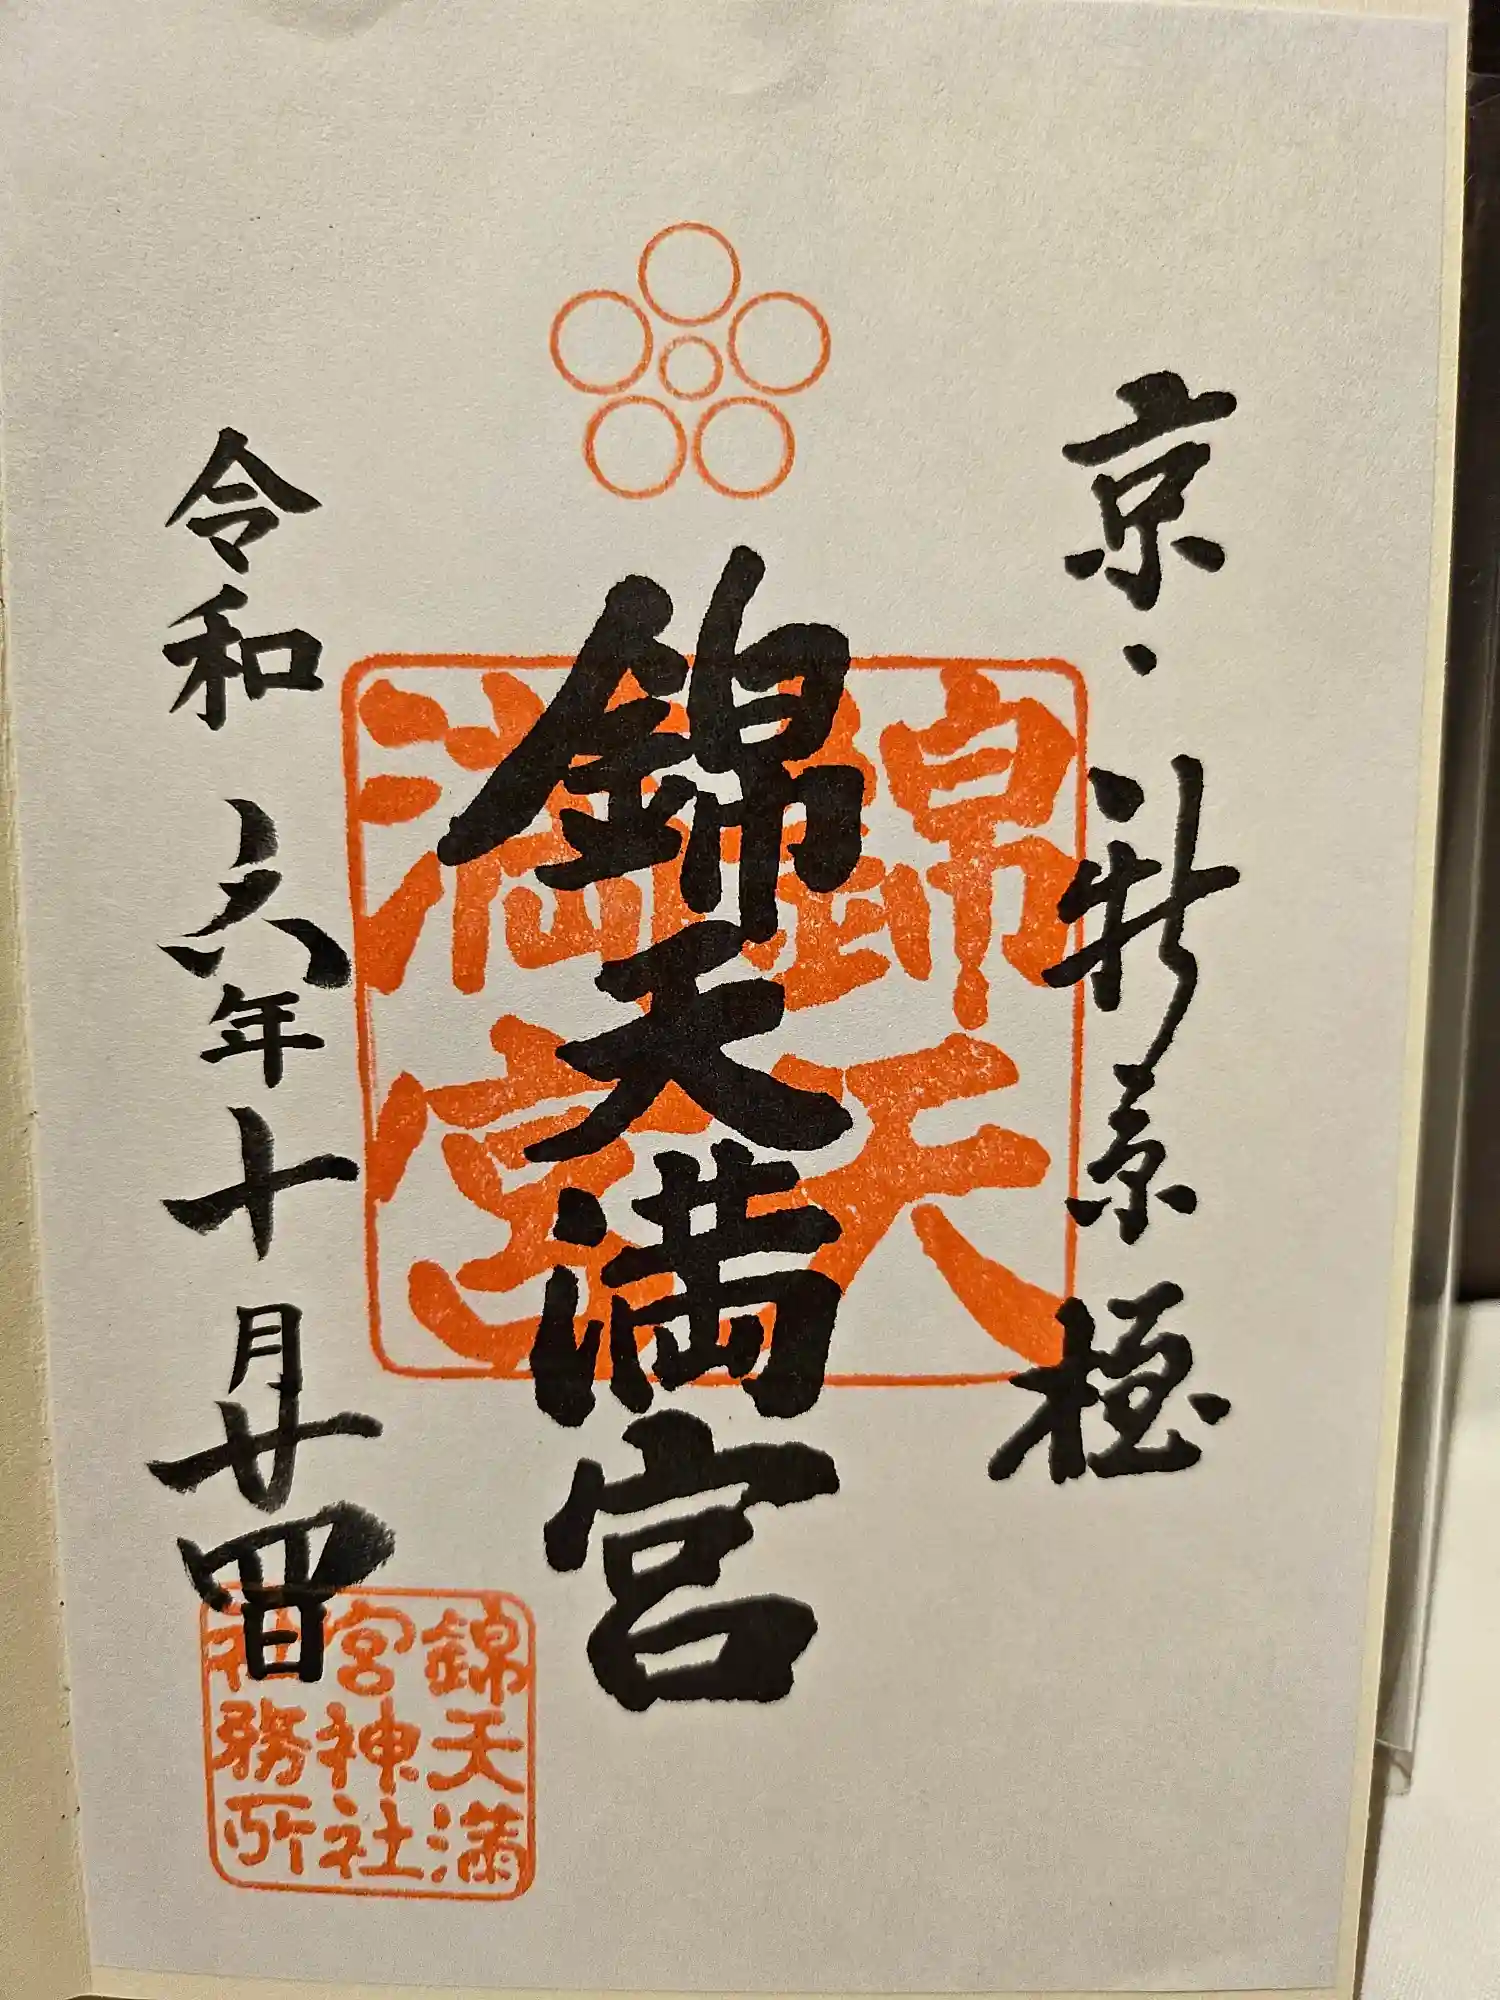 京・新京極
錦天満宮
錦天
満宮
令和六年十月廿四日
錦天満
宮神社
社務所